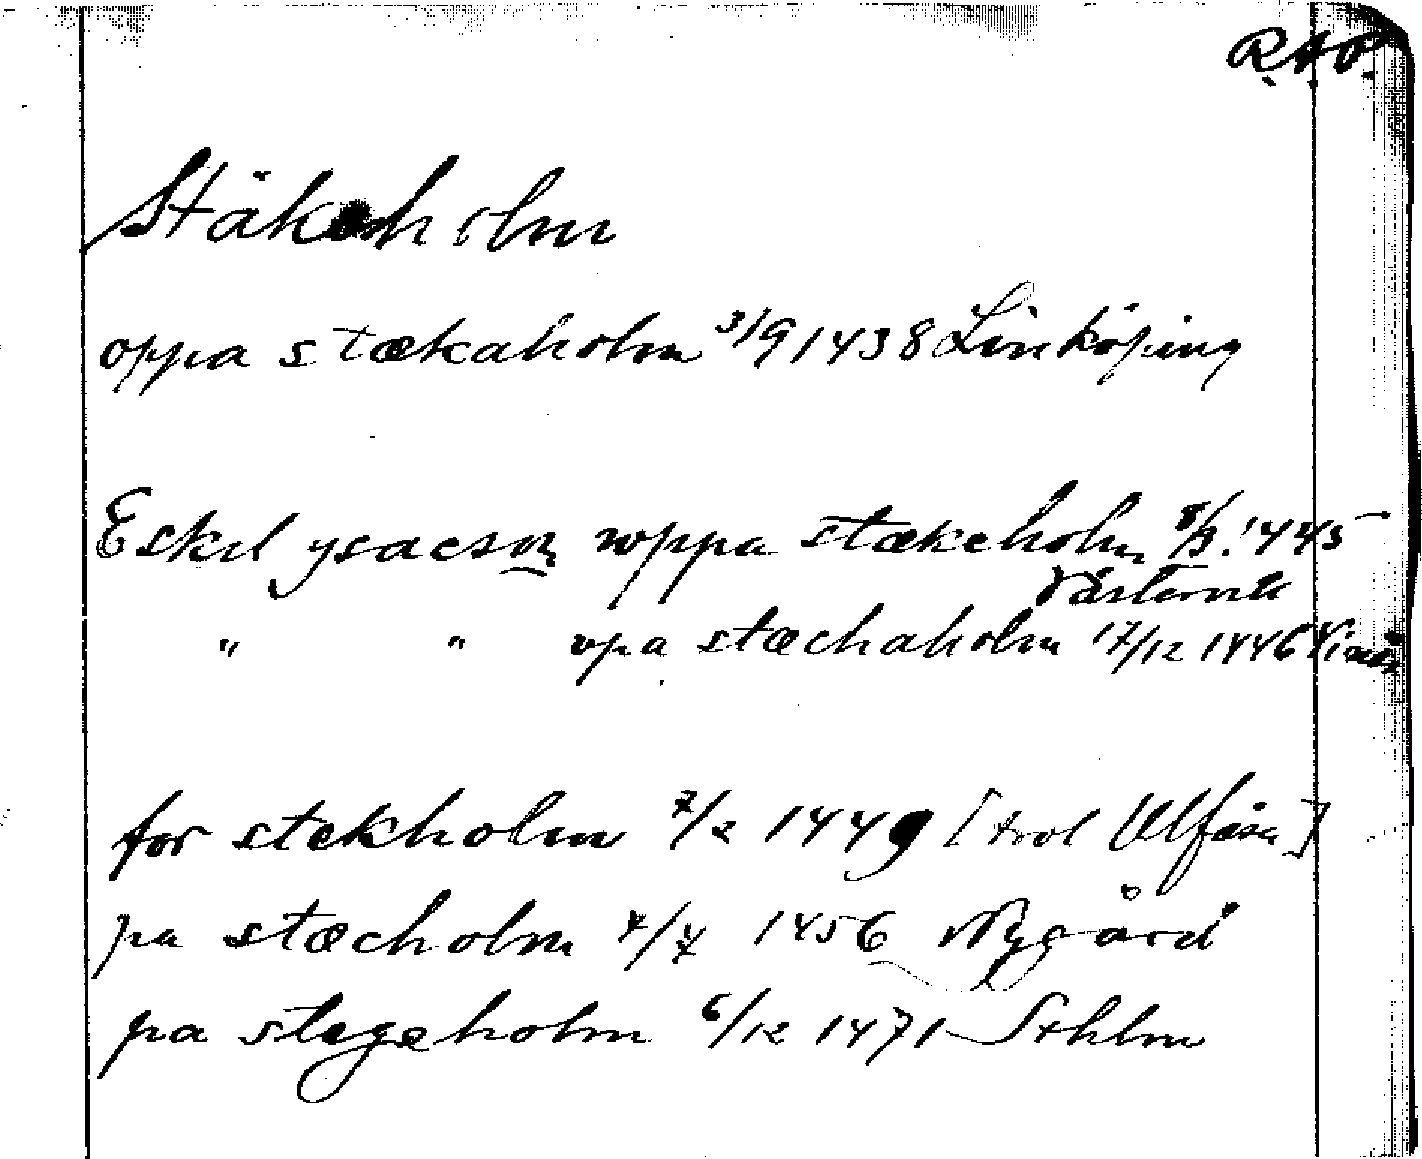 R.A.P.
Stäkeholm
oppa stækaholm 3/9 1438 Linköping
Eskil ysacson woppa stækeholm 8/9. 1445
Västervik
" " vpa stæchaholm 17/12 1446
for stekholm 7/2 1449 [trol Ulfåsa]
pa stæcholm 4/4 1456 Nygård
pa stegeholm 6/12 1471 Sthlm